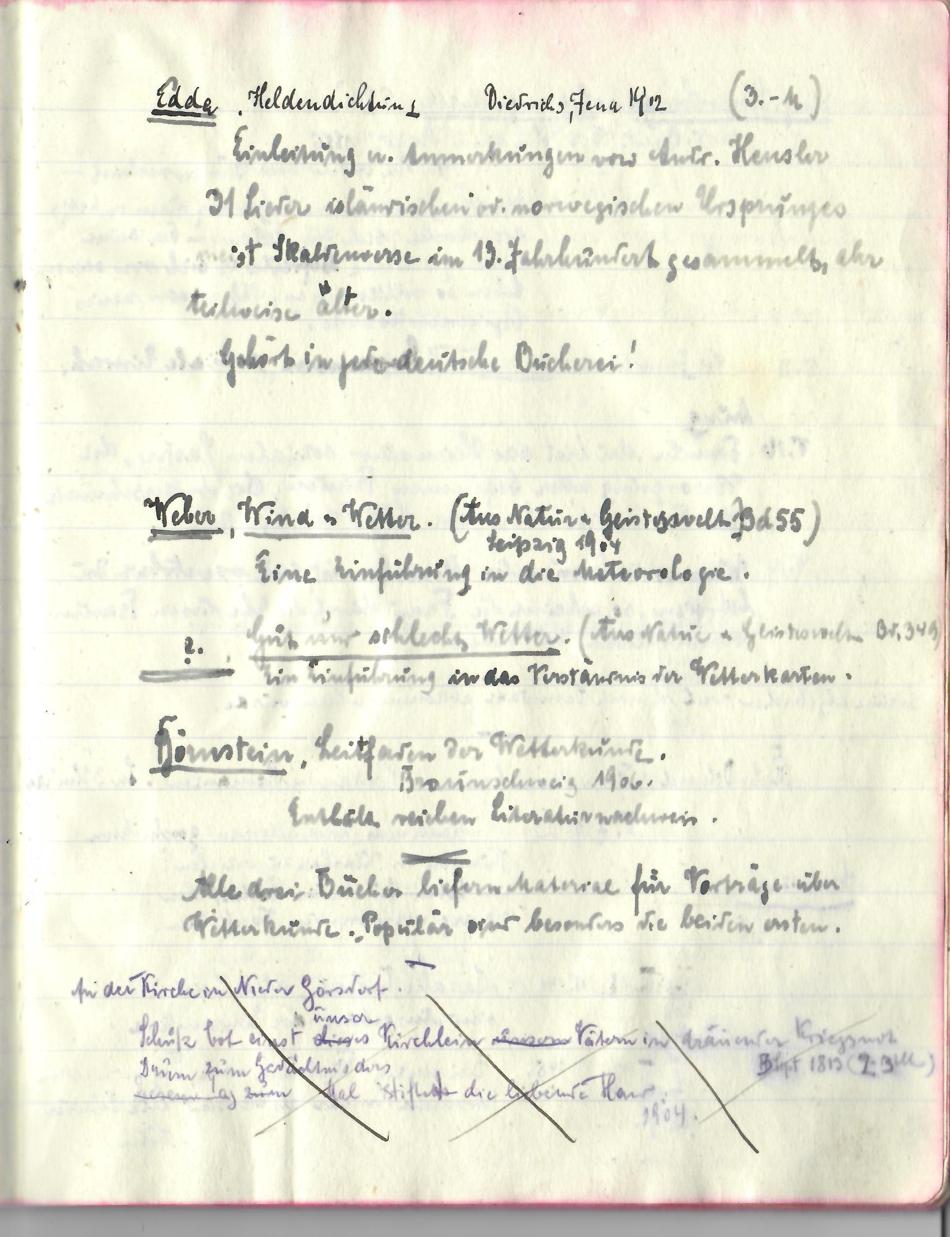 Edda, Heldendichtung Diedrichs, Jena 1912 (3.-M)
Einleitung u. Anmerkungen von Andr. Heusler
31 Lieder isländischen od. norwegischen Ursprunges
meist Skaldenverse im 13. Jahrhundert gesammelt, aber
teilweise älter.
Gehört in jede deutsche Bücherei!
Weber, Wind u Wetter. (Aus Natur u Geisteswelt Bd 55)
Leipzig 1904
Eine Einführung in die Meteorologie.
?. Gut und schlecht Wetter. (Aus Natur u Geisteswelt Bd. 349)
Ein Einführung in das Verständnis der Wetterkarten.
Börnstein, Leitfaden der Wetterkunde.
Braunschweig 1906.
Enthält reichen Literaturnachweis.
Alle drei Bücher liefern Material für Vorträge über
Wetterkunde. Populär sind besonders die beiden ersten.
An der Kirche in Nieder Görsdorf.
unser
Schutz bot einst dieses Kirchlein unseren Vätern in dräuender Kriegsnot
Drum zum Gedächtnis des
Sept 1813
zum Mal stiftet die liebende Hand
1904.